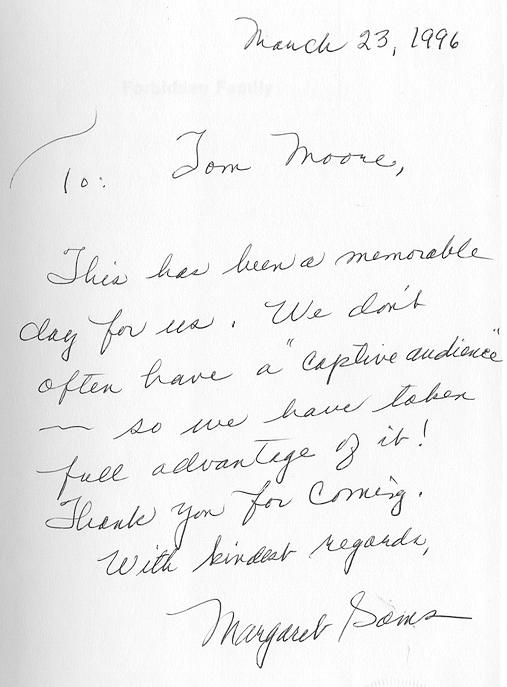 March 23, 1996
Forbidden Family
To: Tom Moore,
This has been a memorable
day for us. We don't
often have a "captive audience"
— so we have taken
full advantage of it!
Thank you for coming.
With kindest regards,
Margaret Sams